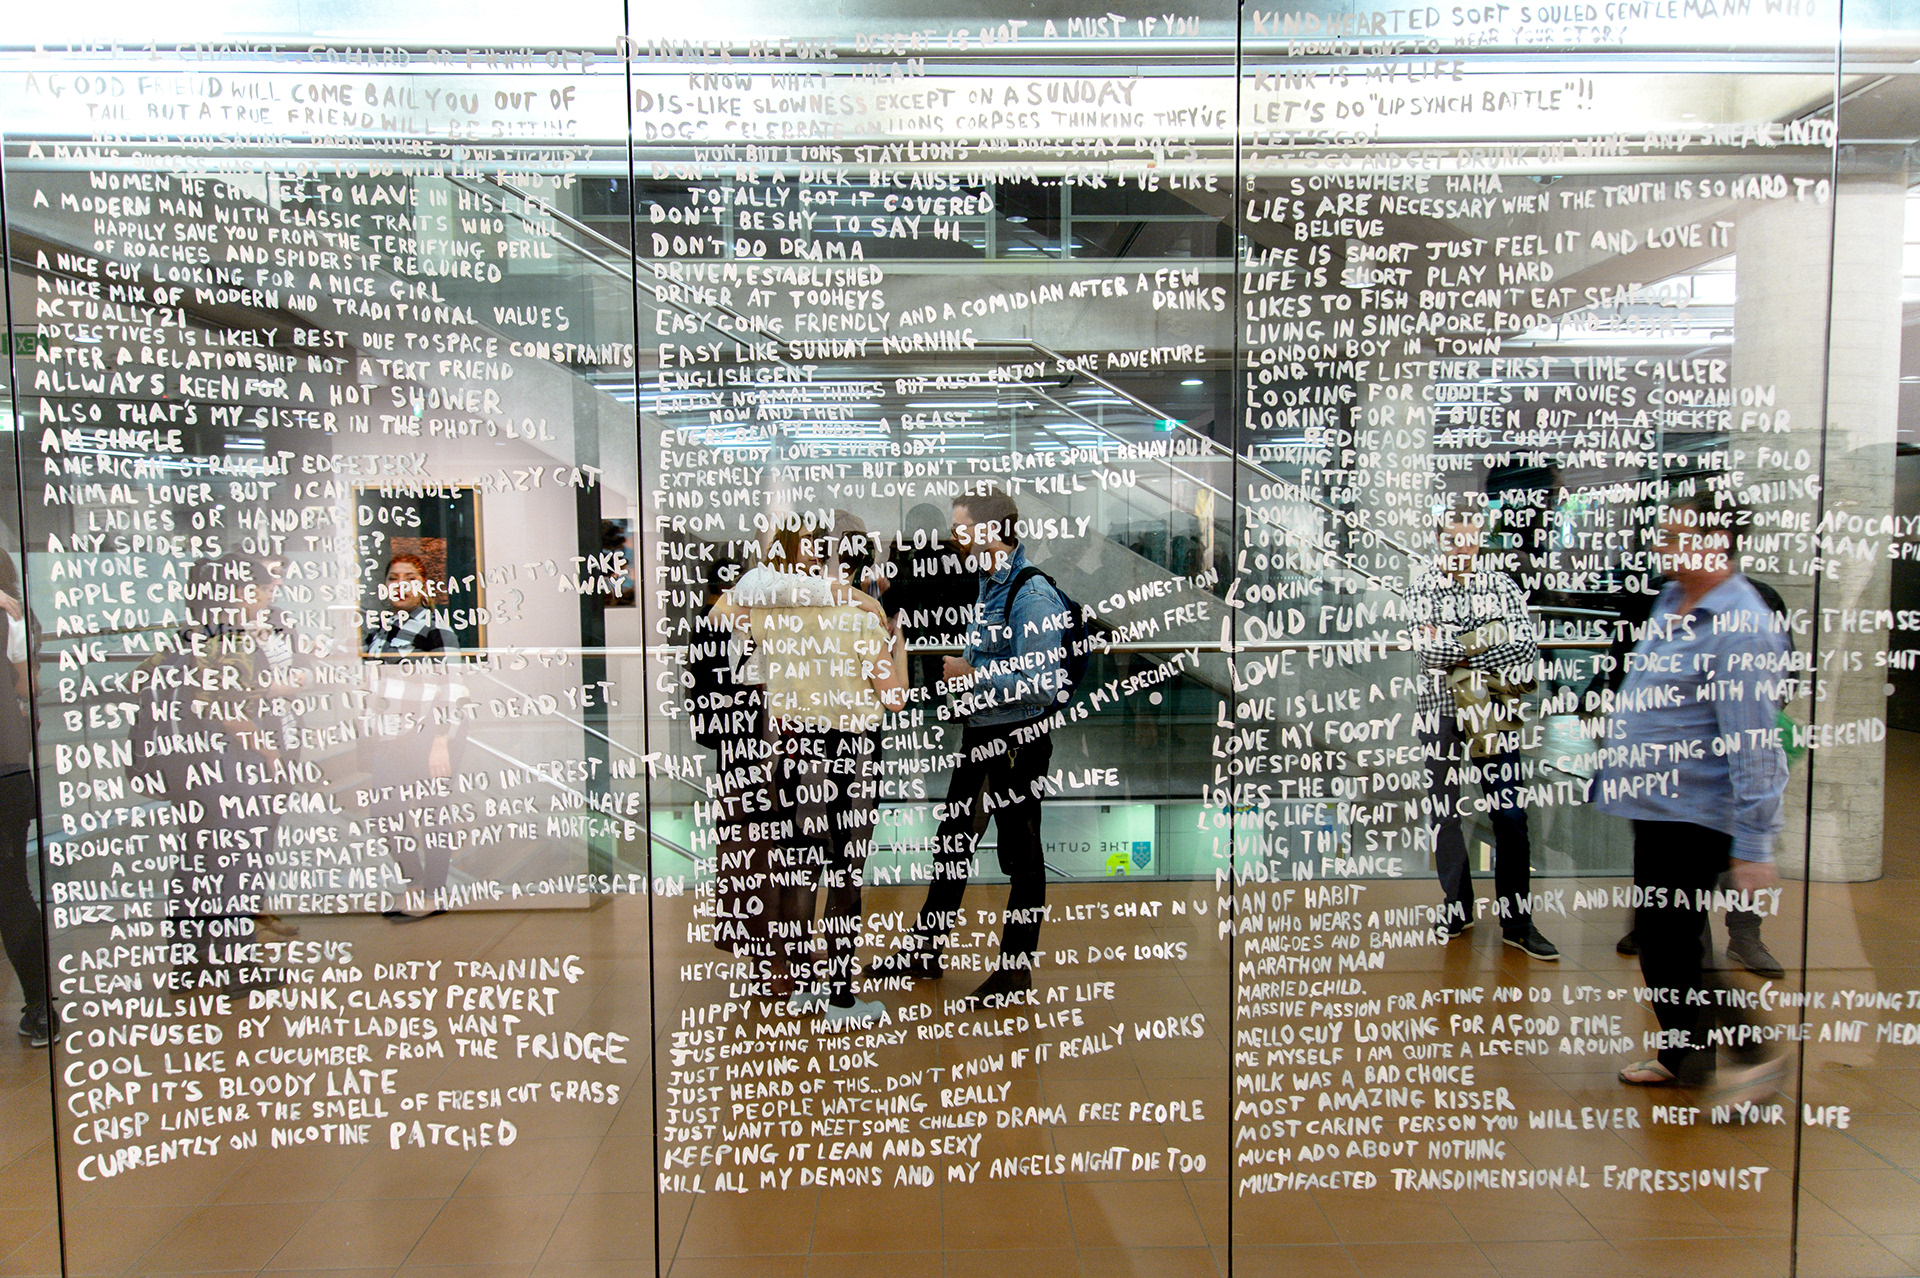 1 LIFE 1 CHANCE. GO HARD OR F### OFF.
A GOOD FRIEND WILL COME BAIL YOU OUT OF
TAIL BUT A TRUE FRIEND WILL BE SITTING
NEXT TO YOU SAYING "DAMN WHERE DID WE FUCK UP"?
A MAN'S SUCCESS HAS A LOT TO DO WITH THE KIND OF
WOMEN HE CHOOSES TO HAVE IN HIS LIFE
A MODERN MAN WITH CLASSIC TRAITS WHO WILL
HAPPILY SAVE YOU FROM THE TERRIFYING PERIL
OF ROACHES AND SPIDERS IF REQUIRED
A NICE GUY LOOKING FOR A NICE GIRL
A NICE MIX OF MODERN AND TRADITIONAL VALUES
ACTUALLY 21
ADJECTIVES IS LIKELY BEST DUE TO SPACE CONSTRAINTS
AFTER A RELATIONSHIP NOT A TEXT FRIEND
ALLWAYS KEEN FOR A HOT SHOWER
ALSO THAT'S MY SISTER IN THE PHOTO LOL
AM SINGLE
AMERICAN STRAIGHT EDGE JERK
ANIMAL LOVER BUT I CAN'T HANDLE CRAZY CAT
LADIES OR HANDBAG DOGS
ANY SPIDERS OUT THERE?
ANYONE AT THE CASINO?
APPLE CRUMBLE AND SELF-DEPRECATION TO TAKE
AWAY
ARE YOU A LITTLE GIRL DEEP INSIDE?
AVG MALE NO KIDS.
BACKPACKER. ONE NIGHT ONLY LET'S GO.
BEST WE TALK ABOUT IT
BORN DURING THE SEVENTIES, NOT DEAD YET.
BORN ON AN ISLAND.
BOYFRIEND MATERIAL BUT HAVE NO INTEREST IN THAT
BROUGHT MY FIRST HOUSE A FEW YEARS BACK AND HAVE
A COUPLE OF HOUSEMATES TO HELP PAY THE MORTGAGE
BRUNCH IS MY FAVOURITE MEAL
BUZZ ME IF YOU ARE INTERESTED IN HAVING A CONVERSATION
AND BEYOND
CARPENTER LIKE JESUS
CLEAN VEGAN EATING AND DIRTY TRAINING
COMPULSIVE DRUNK, CLASSY PERVERT
CONFUSED BY WHAT LADIES WANT
COOL LIKE A CUCUMBER FROM THE FRIDGE
CRAP IT'S BLOODY LATE
CRISP LINEN & THE SMELL OF FRESH CUT GRASS
CURRENTLY ON NICOTINE PATCHED
DINNER BEFORE DESERT IS NOT A MUST IF YOU
KNOW WHAT I MEAN
DIS-LIKE SLOWNESS EXCEPT ON A SUNDAY
DOGS CELEBRATE ON LIONS CORPSES THINKING THEY'VE
WON. BUT LIONS STAY LIONS AND DOGS STAY DOGS.
DON'T BE A DICK BECAUSE UMMM...ERR I'VE LIKE
TOTALLY GOT IT COVERED
DON'T BE SHY TO SAY HI
DON'T DO DRAMA
DRIVEN, ESTABLISHED
DRIVER AT TOOHEYS
EASY GOING FRIENDLY AND A COMIDIAN AFTER A FEW
DRINKS
EASY LIKE SUNDAY MORNING
ENGLISH GENT
ENJOY NORMAL THINGS BUT ALSO ENJOY SOME ADVENTURE
NOW AND THEN
EVERY BEAUTY NEEDS A BEAST
EVERYBODY LOVES EVERYBODY!
EXTREMELY PATIENT BUT DON'T TOLERATE SPOILT BEHAVIOUR
FIND SOMETHING YOU LOVE AND LET IT KILL YOU
FROM LONDON
FUCK I'M A RETART LOL SERIOUSLY
FULL OF MUSCLE AND HUMOUR
FUN THAT IS ALL
GAMING AND WEED ANYONE
GENUINE NORMAL GUY LOOKING TO MAKE A CONNECTION
GO THE PANTHERS
GOOD CATCH...SINGLE, NEVER BEEN MARRIED NO KIDS, DRAMA FREE
HAIRY ARSED ENGLISH BRICK LAYER
HARDCORE AND CHILL?
HARRY POTTER ENTHUSIAST AND TRIVIA IS MY SPECIALTY
HATES LOUD CHICKS
HAVE BEEN AN INNOCENT GUY ALL MY LIFE
HEAVY METAL AND WHISKEY
HE'S NOT MINE, HE'S MY NEPHEW
HELLO
HEYAA... FUN LOVING GUY...LOVES TO PARTY.. LET'S CHAT N U
WILL FIND MORE ABT ME...TA
HEY GIRLS...US GUYS DON'T CARE WHAT UR DOG LOOKS
LIKE... JUST SAYING
HIPPY VEGAN
JUST A MAN HAVING A RED HOT CRACK AT LIFE
JUS ENJOYING THIS CRAZY RIDE CALLED LIFE
JUST HAVING A LOOK
JUST HEARD OF THIS...DON'T KNOW IF IT REALLY WORKS
JUST PEOPLE WATCHING REALLY
JUST WANT TO MEET SOME CHILLED DRAMA FREE PEOPLE
KEEPING IT LEAN AND SEXY
KILL ALL MY DEMONS AND MY ANGELS MIGHT DIE TOO
KINDHEARTED SOFT SOULED GENTLEMANN WHO
WOULD LOVE TO HEAR YOUR STORY
KINK IS MY LIFE
LET'S DO "LIP SYNCH BATTLE"!!
LET'S GO!
LET'S GO AND GET DRUNK ON WINE AND SNEAK INTO
SOMEWHERE HAHA
LIES ARE NECESSARY WHEN THE TRUTH IS SO HARD TO
BELIEVE
LIFE IS SHORT JUST FEEL IT AND LOVE IT
LIFE IS SHORT PLAY HARD
LIKES TO FISH BUT CAN'T EAT SEAFOOD
LIVING IN SINGAPORE, FOOD AND
LONDON BOY IN TOWN
LONG TIME LISTENER FIRST TIME CALLER
LOOKING FOR CUDDLES N MOVIES COMPANION
LOOKING FOR MY QUEEN BUT I'M A SUCKER FOR
REDHEADS AND CURVY ASIANS
LOOKING FOR SOMEONE ON THE SAME PAGE TO HELP FOLD
FITTED SHEETS
LOOKING FOR SOMEONE TO MAKE A SANDWICH IN THE
MORNING
LOOKING FOR SOMEONE TO PREP FOR THE IMPENDING ZOMBIE APOCALY
LOOKING FOR SOMEONE TO PROTECT ME FROM HUNTSMAN SPI
LOOKING TO DO SOMETHING WE WILL REMEMBER FOR LIFE
LOOKING TO SEE HOW THIS WORKS LOL
LOUD FUN AND BUBBLY
LOVE FUNNY SHIT. RIDICULOUS TWATS HURTING THEMSE
LOVE IS LIKE A FART... IF YOU HAVE TO FORCE IT PROBABLY IS SHIT
LOVE MY FOOTY AN MY UFC AND DRINKING WITH MATES
LOVE SPORTS ESPECIALLY TABLE TENNIS
LOVES THE OUTDOORS AND GOING CAMPDRAFTING ON THE WEEKEND
LOVING LIFE RIGHT NOW. CONSTANTLY HAPPY!
LOVING THIS STORY
MADE IN FRANCE
MAN OF HABIT
MAN WHO WEARS A UNIFORM FOR WORK AND RIDES A HARLEY
MANGOES AND BANANAS
MARATHON MAN
MARRIED, CHILD.
MASSIVE PASSION FOR ACTING AND DO LOTS OF VOICE ACTING (THINK A YOUNG J
MELLO GUY LOOKING FOR A GOOD TIME
ME MYSELF I AM QUITE A LEGEND AROUND HERE...MY PROFILE AINT MED
MILK WAS A BAD CHOICE
MOST AMAZING KISSER
MOST CARING PERSON YOU WILL EVER MEET IN YOUR LIFE
MUCH ADO ABOUT NOTHING
MULTIFACETED TRANSDIMENSIONAL EXPRESSIONIST
THE GUTH